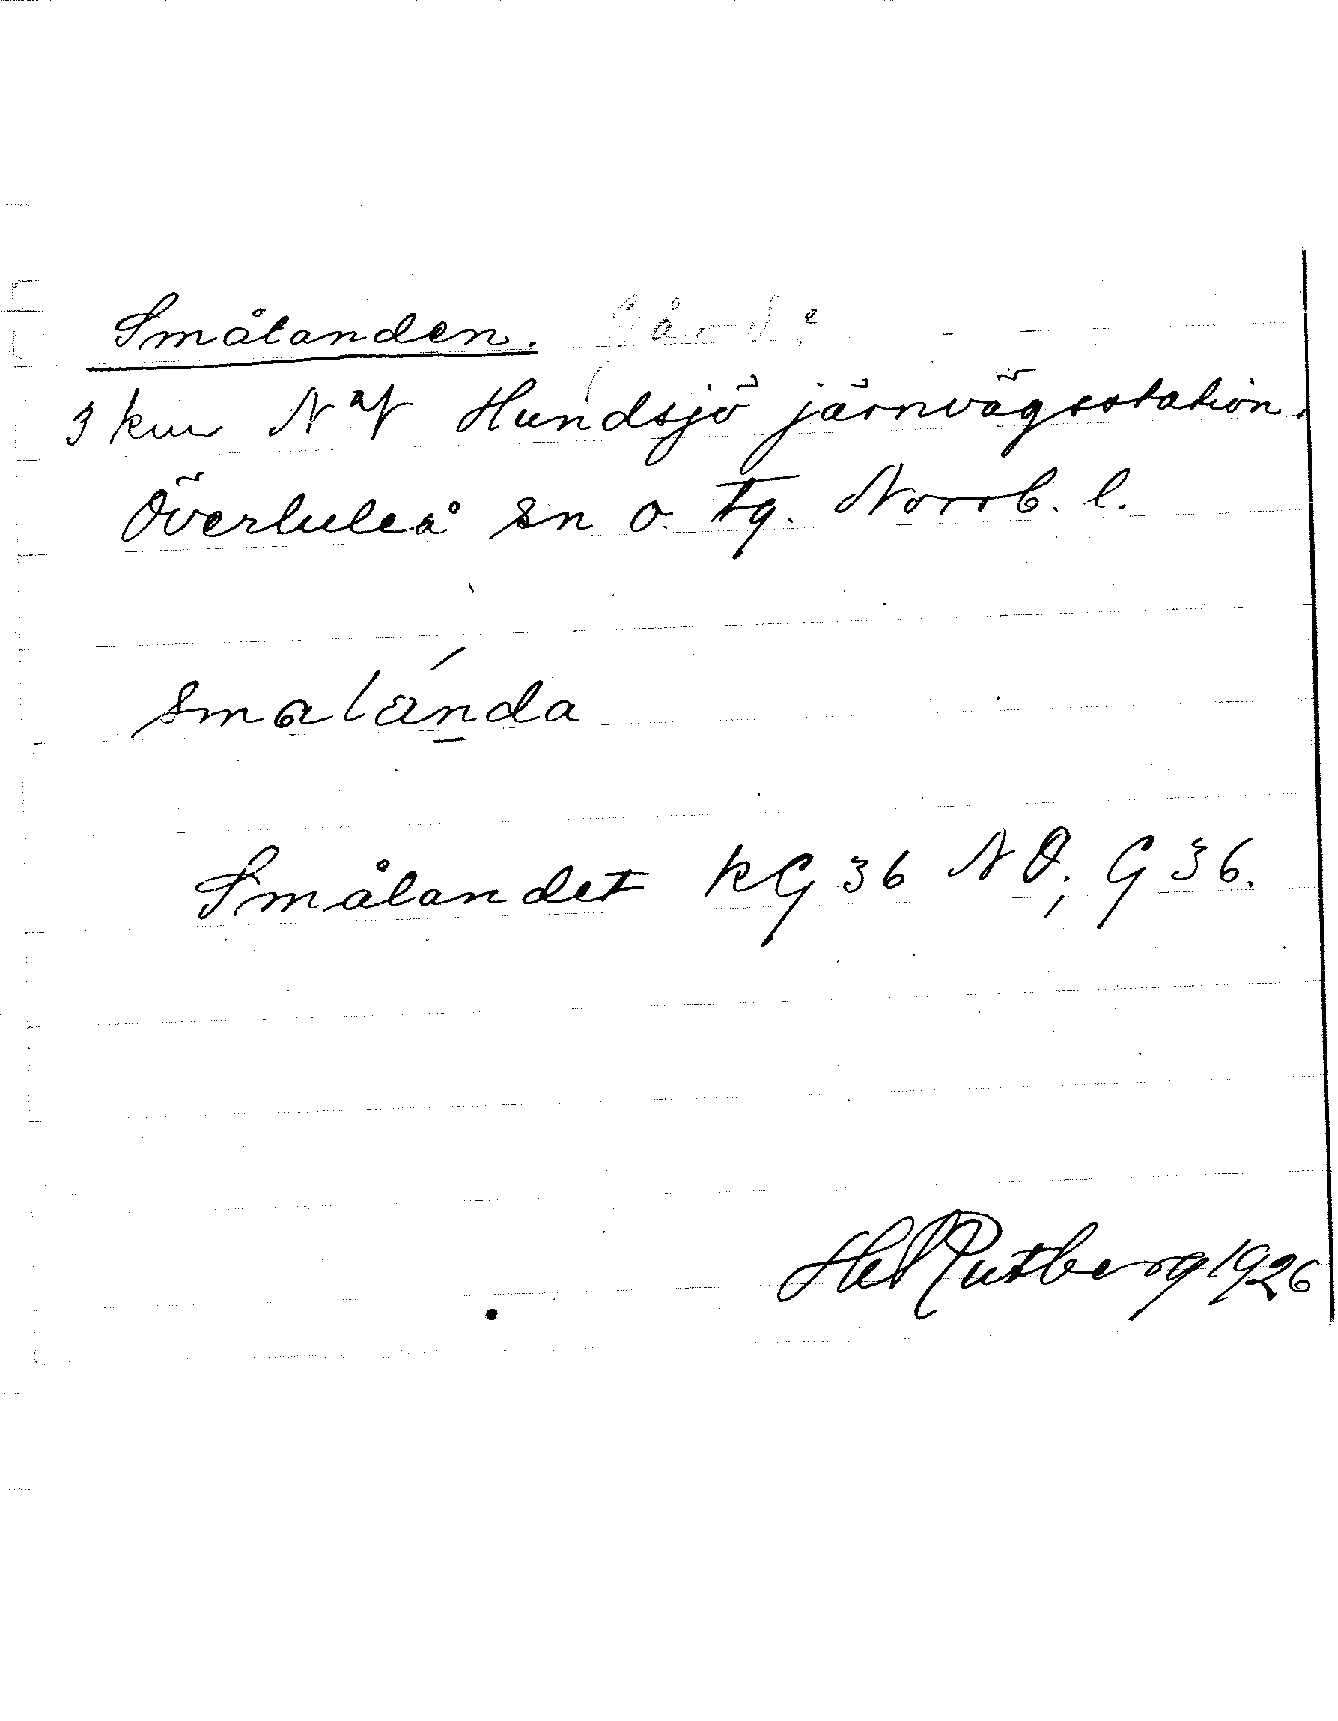 Smålanden. Gård.
3 km N af Hundsjö järnvägsstation.
Överluleå sn o. tg. Norrb. l.
smalánda
Smålandet kG 36 NO; G 36.
Hel Rutberg 1926